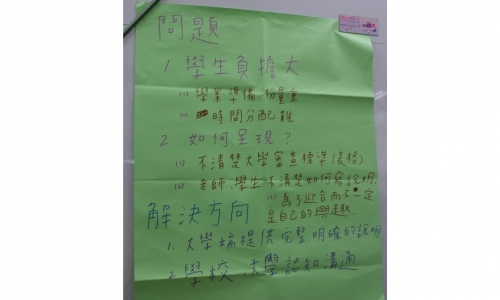 問題
1. 學生負擔大
(1) 學業準備、份量重
(2) 時間分配難
2. 如何呈現？
(1) 不清楚大學審查標準(表格)
(2) 老師、學生不清楚如何寫說明.
(3) 為了迎合而不一定
是自己的興趣.
解決方向:
1. 大學端提供完整明確的說明
2. 學校、大學認知溝通